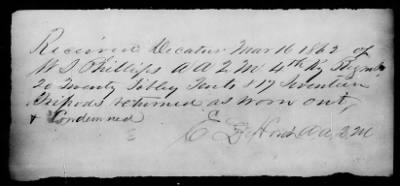 Received Decatur Mar 16 1862 of
W S Phillips A A Q M 4th Ky Regmt
20 Twenty Sibley Tents & 17 Seventeen
Tripods returned as worn out,
& Condemned
E A A Q M